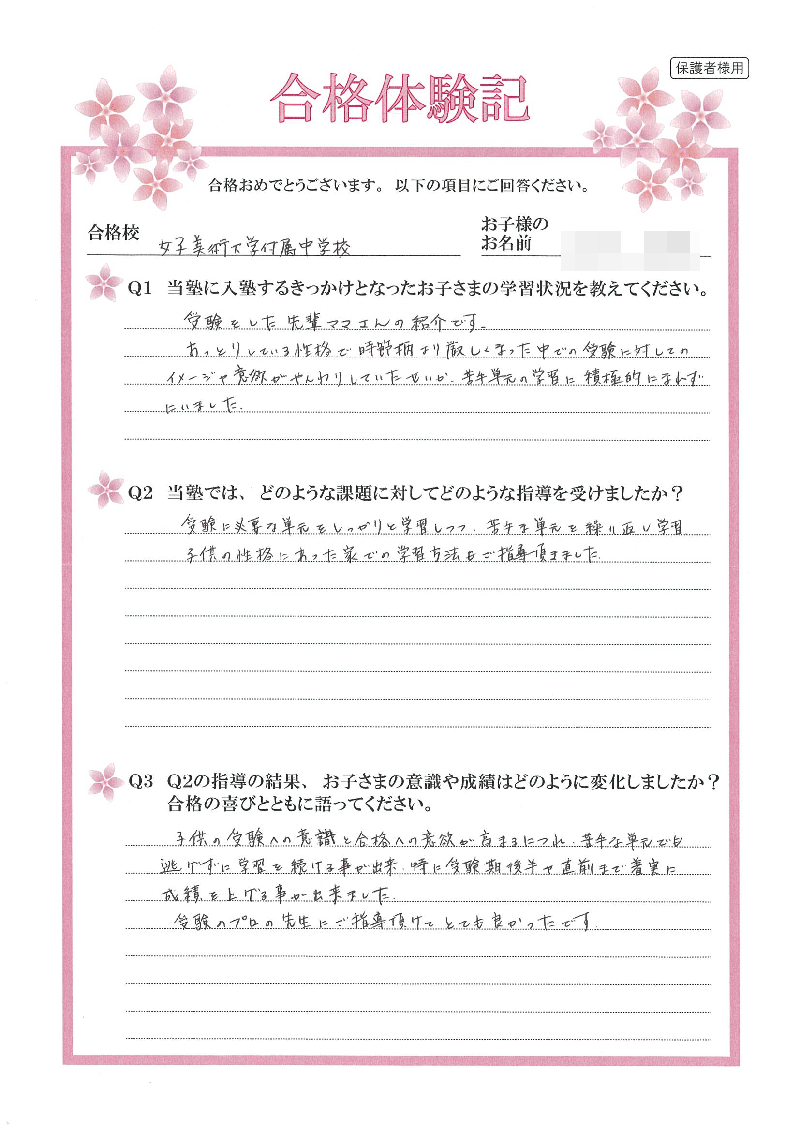 保護者様用
合格体験記
合格おめでとうございます。以下の項目にご回答ください。
合格校 女子美術大学付属中学校
お子様の
お名前
Q1 当塾に入塾するきっかけとなったお子さまの学習状況を教えてください。
受験をした先輩ママさんの紹介です。
おっとりしている性格で時節柄より厳しくなった中での受験に対しての
イメージや意欲がやんわりしていたせいか、苦手単元の学習に積極的になれず
にいました。
Q2 当塾では、どのような課題に対してどのような指導を受けましたか？
受験に必要な単元をしっかりと学習しつつ、苦手な単元を繰り返し学習
子供の性格にあった家での学習方法もご指導頂きました。
Q3 Q2の指導の結果、お子さまの意識や成績はどのように変化しましたか？
合格の喜びとともに語ってください。
子供の受験への意識と合格への意欲が高まるにつれ、苦手な単元でも
逃げずに学習を続ける事が出来、特に受験期後半や直前まで着実に
成績を上げる事が出来ました。
受験のプロの先生にご指導頂けてとても良かったです。